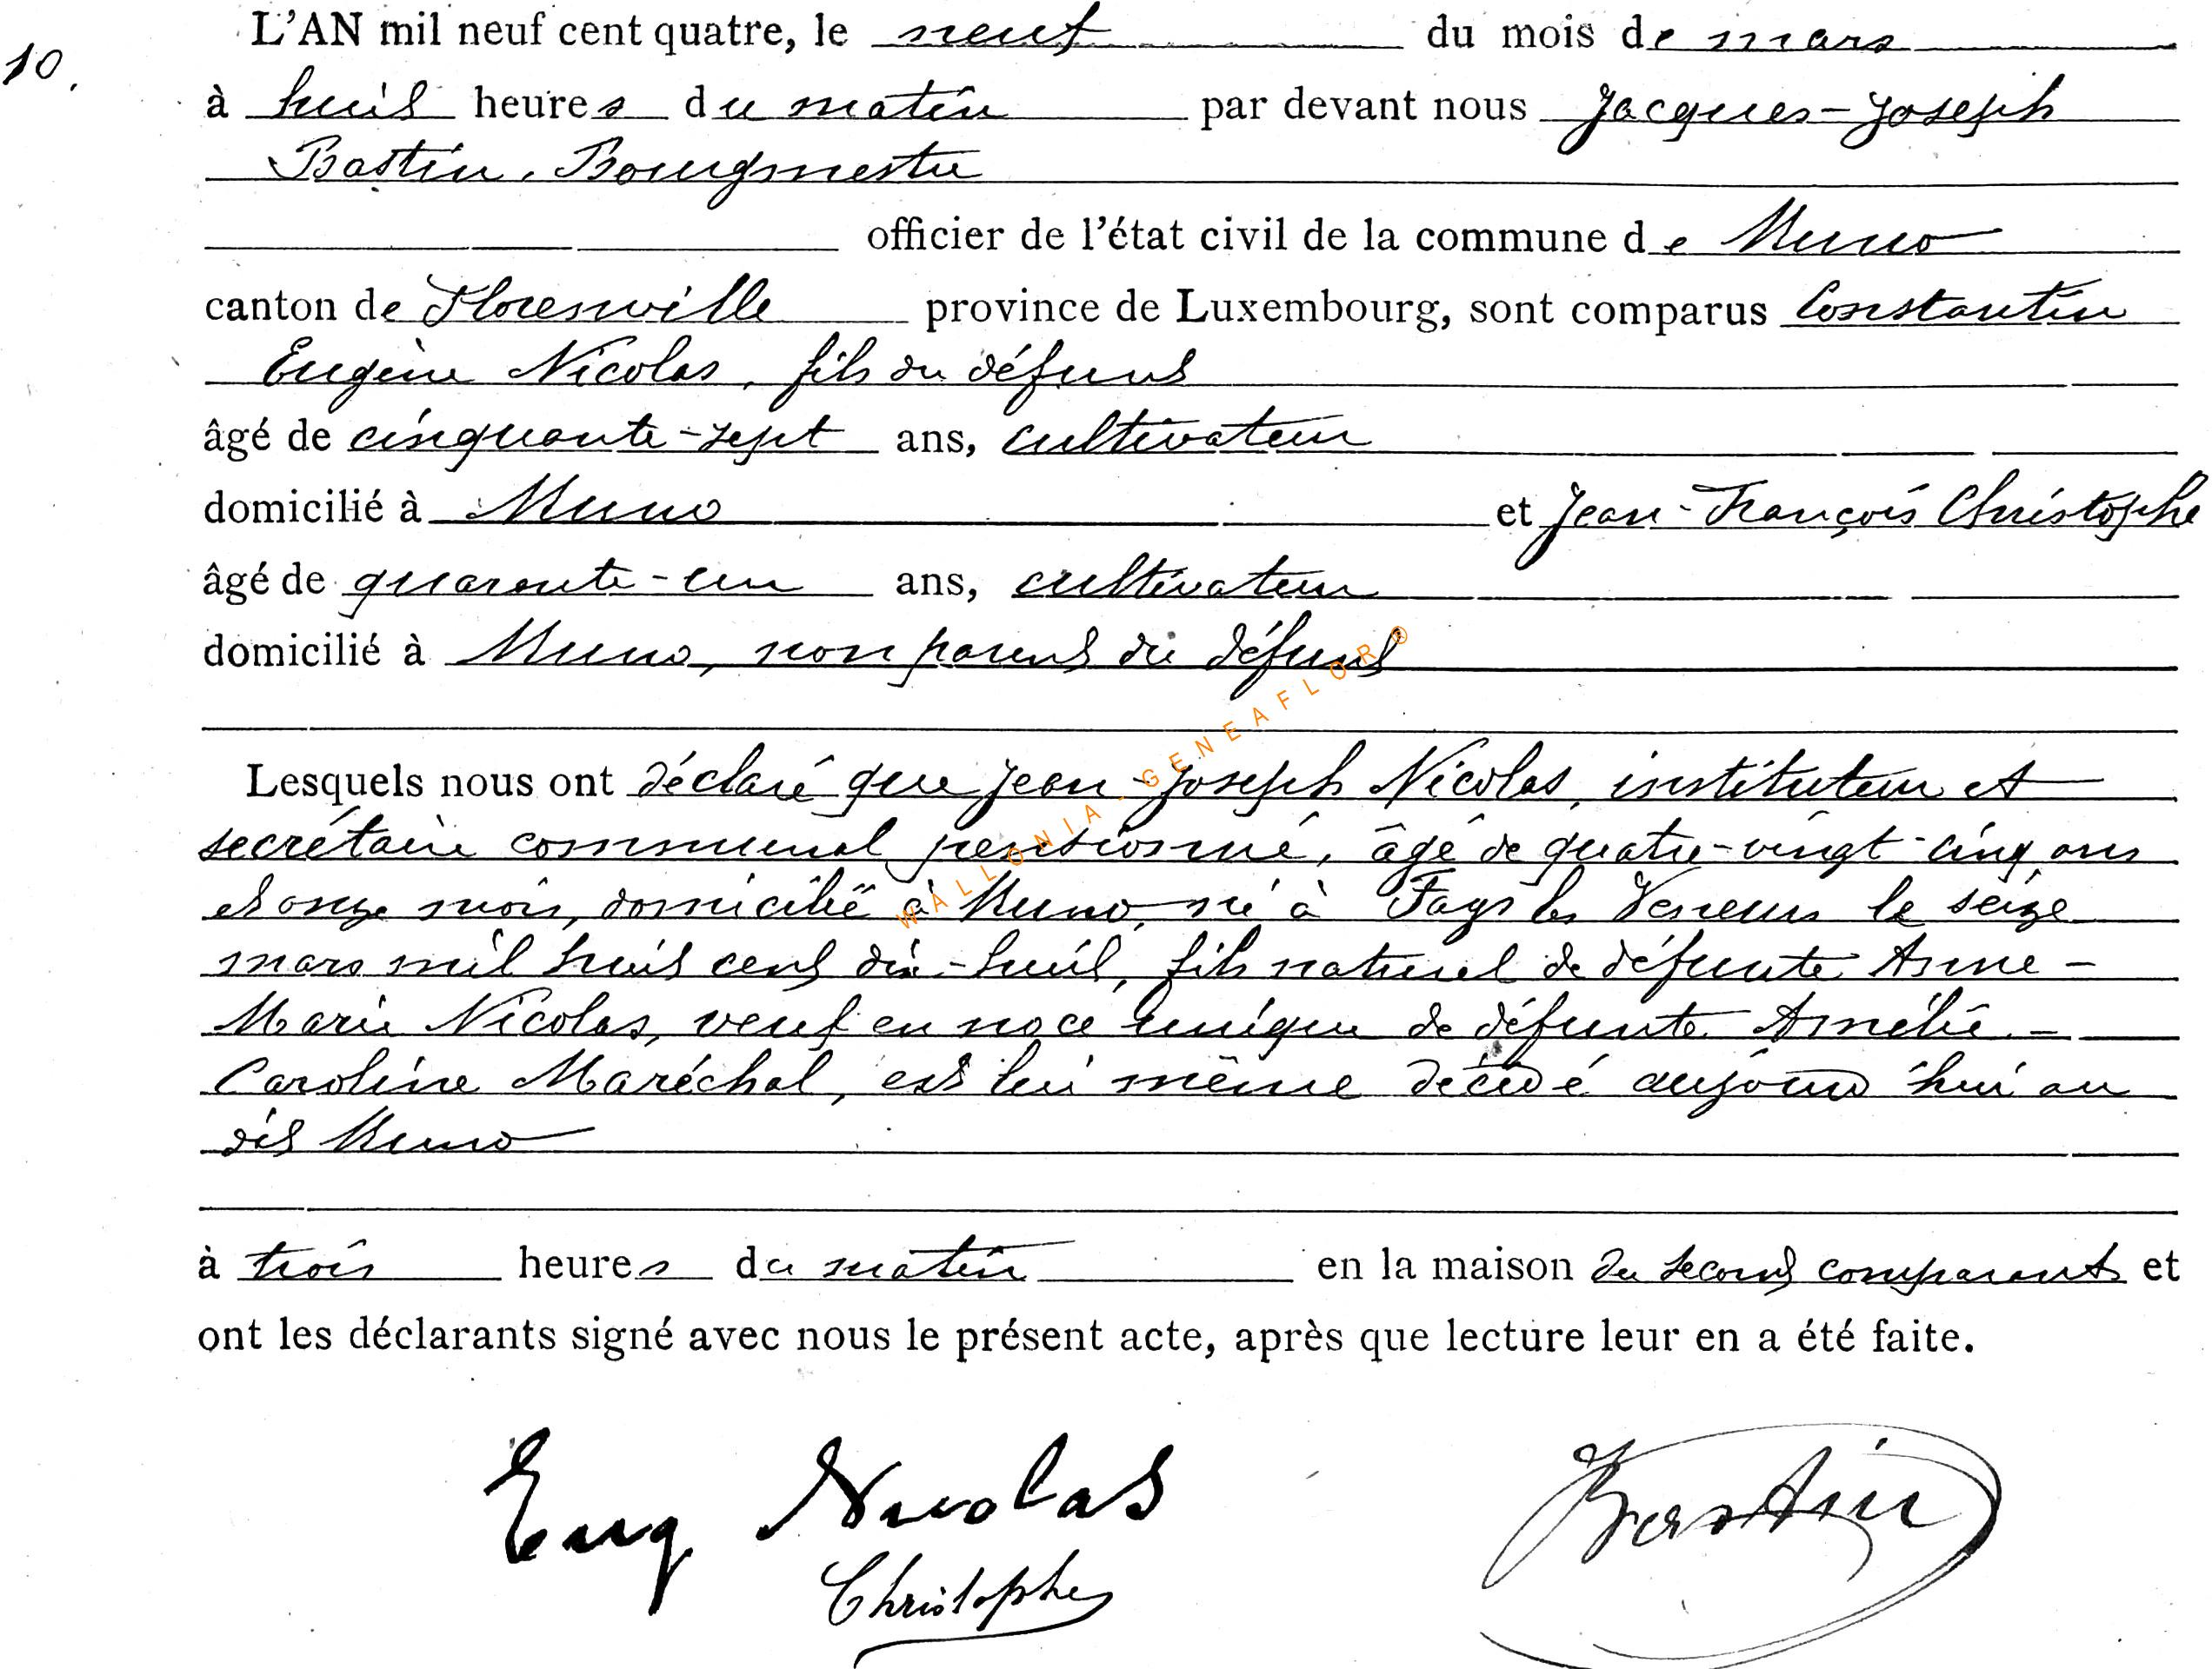 10.
L'AN mil neuf cent quatre, le neuf du mois de mars
à huit heures du matin par devant nous Jacques-Joseph
Bastin, Bourgmestre
officier de l'état civil de la commune de Muno
canton de Florenville province de Luxembourg, sont comparus Constantin
Eugène Nicolas, fils du défunt
âgé de cinquante-sept ans, cultivateur
domicilié à Muno et Jean-François Christophe
âgé de quarante-un ans, cultivateur
domicilié à Muno, non parent du défunt
Lesquels nous ont déclaré que Jean-Joseph Nicolas, instituteur et
secrétaire communal pensionné, âgé de quatre-vingt-cinq ans
et onze mois, domicilié à Muno, né à Fays les Veneurs le seize
mars mil huit cent dix-huit, fils naturel de défunte Anne-
Marie Nicolas, veuf en noce unique de défunte Amélie-
Caroline Maréchal, est lui même décédé aujourd'hui au
dit Muno
à trois heures du matin en la maison du second comparant et
ont les déclarants signé avec nous le présent acte, après que lecture leur en a été faite.
Eug Nicolas
Christophe
Bastin
WALLONIA-GENEAFLOR®